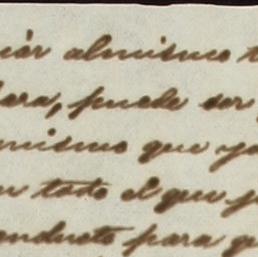 iár almismo t
lara, puede ser
mismo que ya
n todo el que p
onducto para q